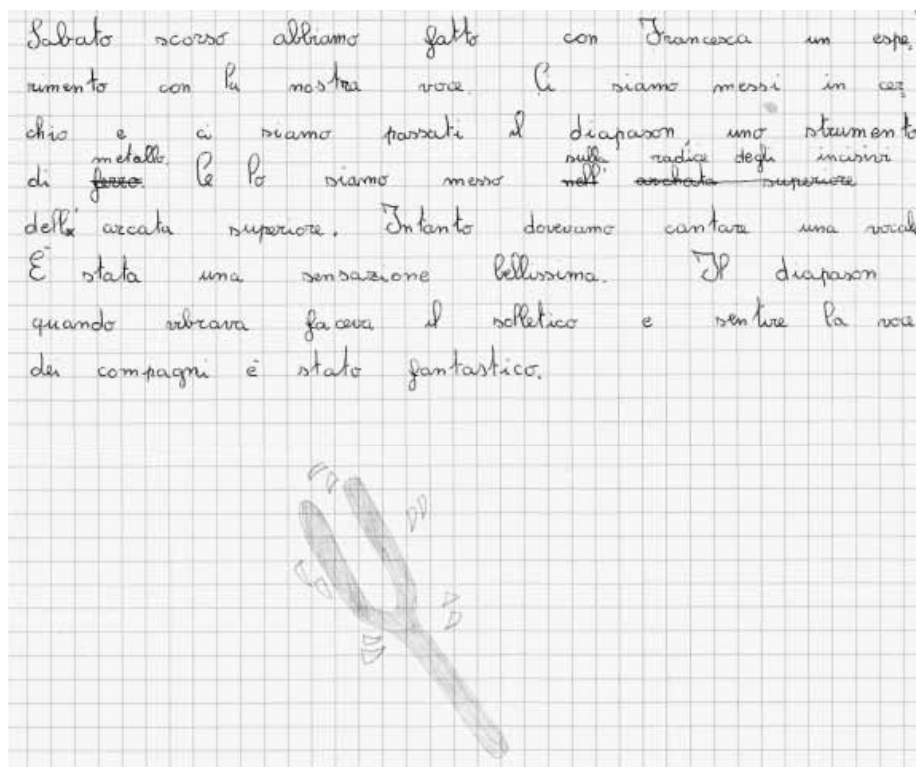 Sabato scorso abbiamo fatto con Francesca un espe.
rimento con la nostra voce. Ci siamo messi in cer
chio e ci siamo passati il diapason, uno strumento
metallo. sulla radice degli incisivi
di ferro. Ce lo siamo messo nell' archata superiore
dell' arcata superiore. Intanto dovevamo cantare una vocale
È stata una sensazione bellissima. Il diapason
quando vibrava faceva il solletico e sentire la voce
dei compagni è stato fantastico.